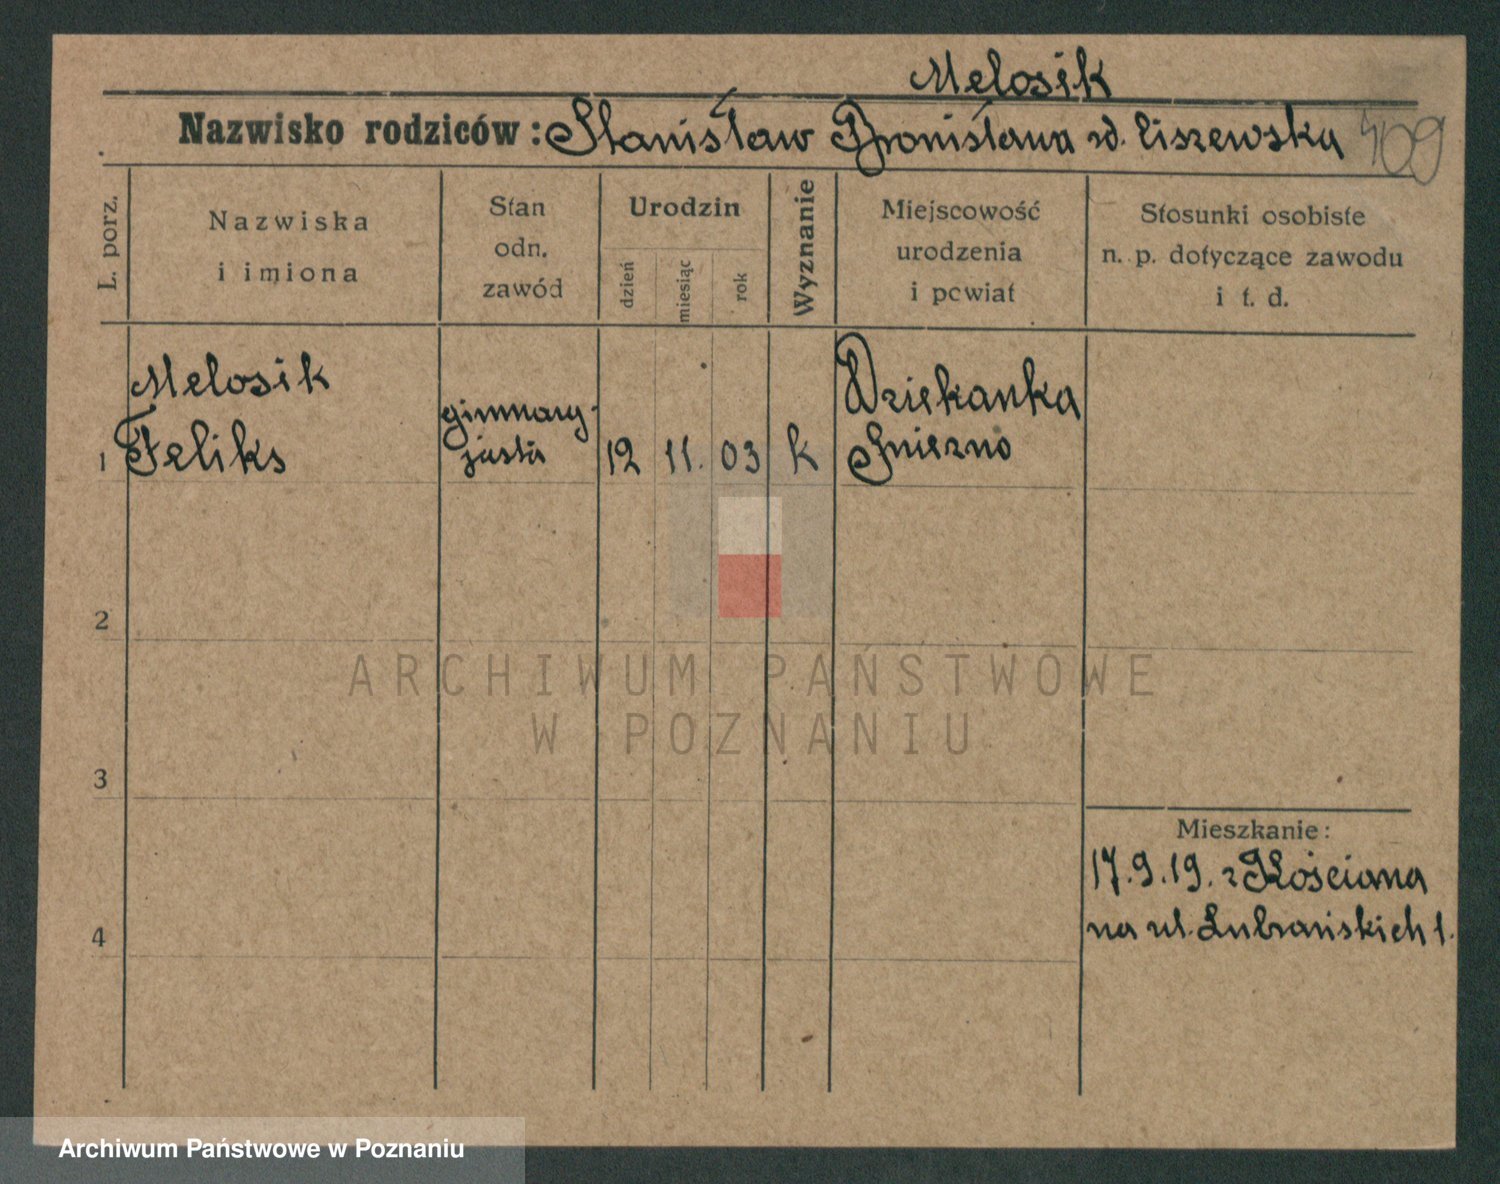 Melosik
Nazwisko rodziców: Stanisław Bronisława zd. Ciszewska 409
L. porz.
Nazwiska
i imiona
Stan
odn.
zawód
Urodzin
dzień
miesiąc
rok
Wyznanie
Miejscowość
urodzenia
i powiat
Stosunki osobiste
n. p. dotyczące zawodu
i t. d.
Melosik
1 Feliks
gimnazy-
jasta
12 11. 03 k
Dziekanka
Gniezno
2
3
4
Mieszkanie:
17.9.19. z Kościana
na ul. Lubrańskich 1.
ARCHIWUM PAŃSTWOWE
W POZNANIU
Archiwum Państwowe w Poznaniu